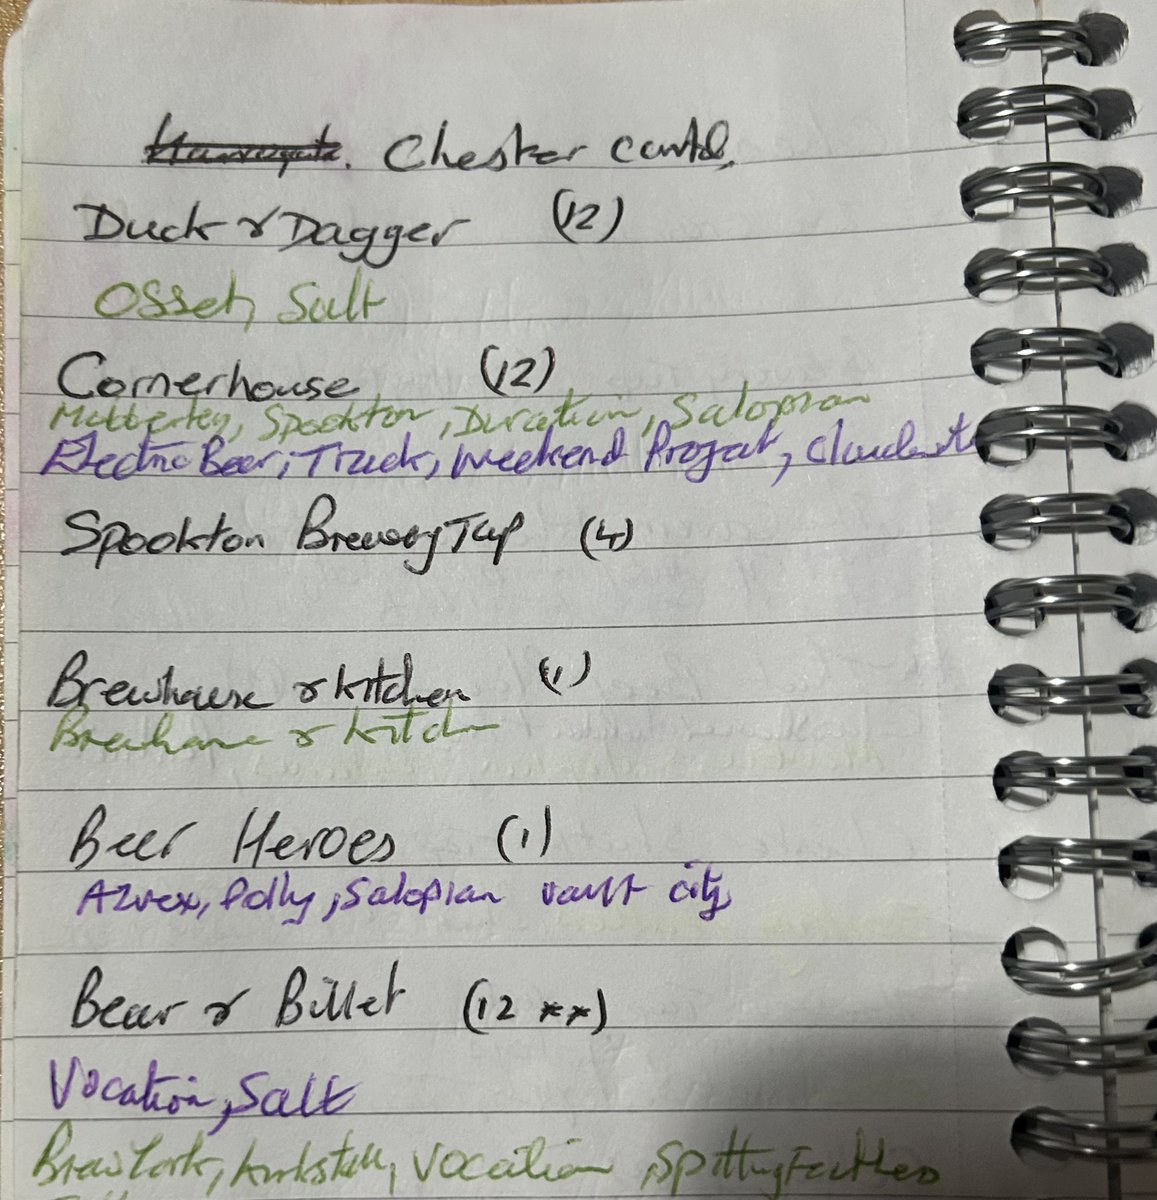 Chester contd.
Duck & Dagger (12)
Ossett, Salt
Cornerhouse (12)
Mobberley, Spookton, Duration, Salopian
Electric Bear, Track, Weekend Project, Cloudwate
Spookton Brewery Tap (4)
Brewhouse & Kitchen (1)
Brewhouse & Kitchen
Beer Heroes (1)
Azvex, Polly, Salopian Vault City
Bear & Billet (12 **)
Vocation, Salt
Brew York, Kirkstall, Vocation, Spitting Feathers